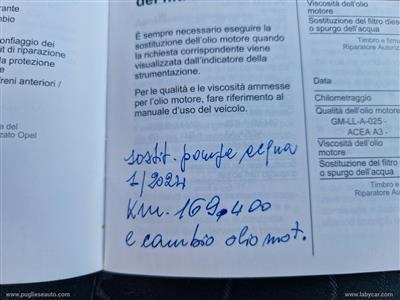 rante
mbio
onfiaggio dei
it di riparazione
a protezione
e
reni anteriori /
a del
zzato Opel
È sempre necessario eseguire la
sostituzione dell'olio motore quando
la richiesta corrispondente viene
visualizzata dall'indicatore della
strumentazione.
Per le qualità e le viscosità ammesse
per l'olio motore, fare riferimento al
manuale d'uso del veicolo.
sostit. pompa acqua
1/2024
Km. 169.400
e cambio olio mot.
Viscosità dell'olio
motore
Sostituzione del filtro diese
o spurgo dell'acqua
Timbro e firma
Riparatore Autoriz
Data
Chilometraggio
Qualità dell'olio motore
GM-LL-A-025 -
ACEA A3 -
Viscosità dell'olio
motore
Sostituzione del filtro
o spurgo dell'acqua
Timbro e
Riparatore Au
www.puglieseauto.com
www.labycar.com